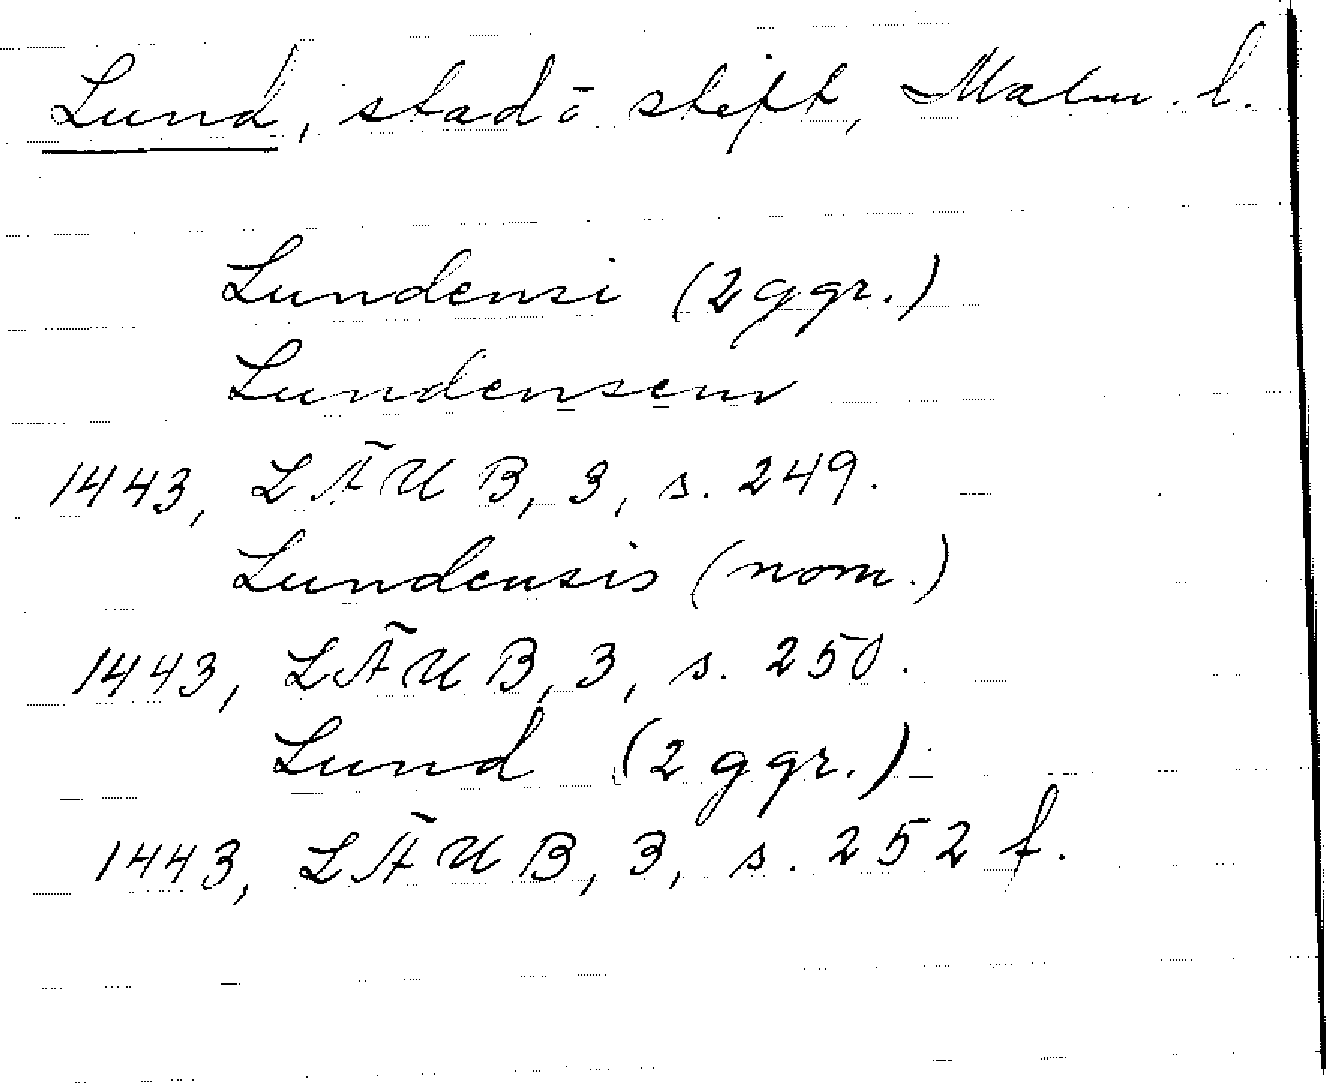 Lund, stad o. stift, Malm. l.
Lundensi (2 ggr.)
Lundensem
1443, LÄUB, 3, s. 249.
Lundensis (nom.)
1443, LÄUB, 3, s. 250.
Lund (2 ggr.)
1443, LÄUB, 3, s. 252 f.